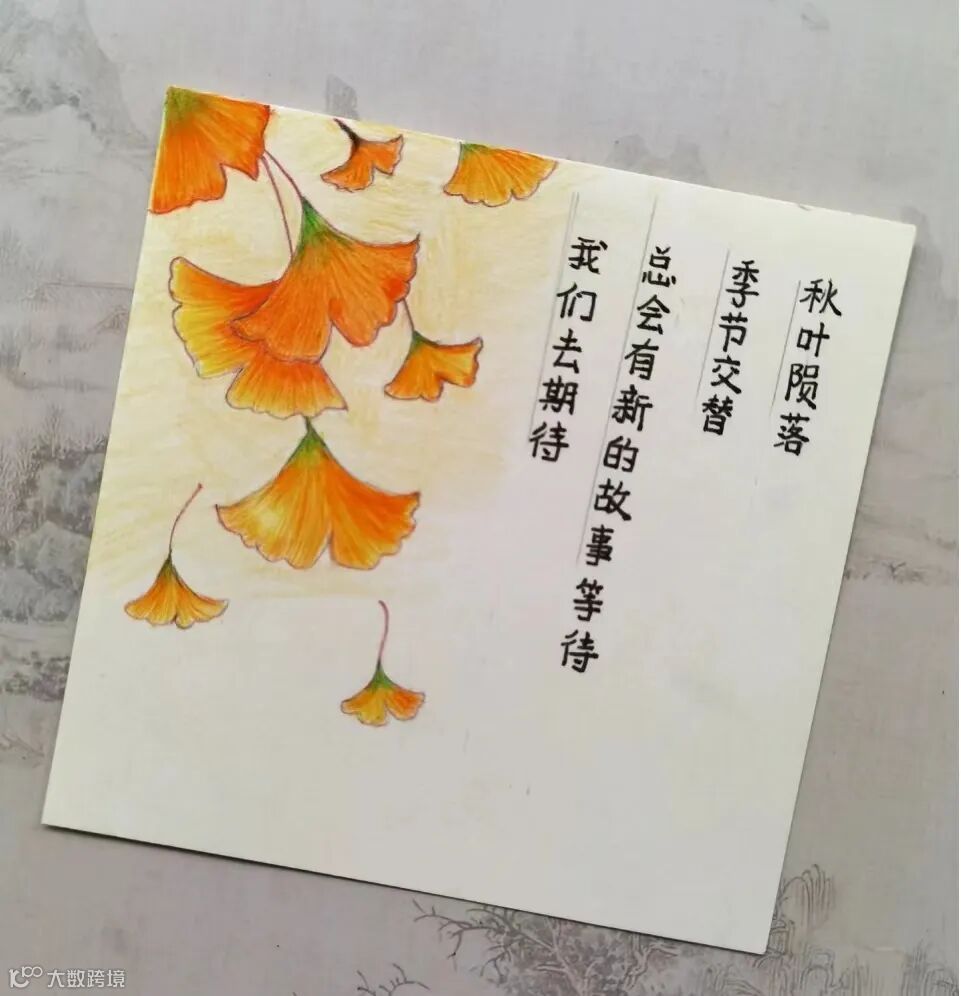 秋叶陨落
季节交替
总会有新的故事等待
我们去期待
大数跨境